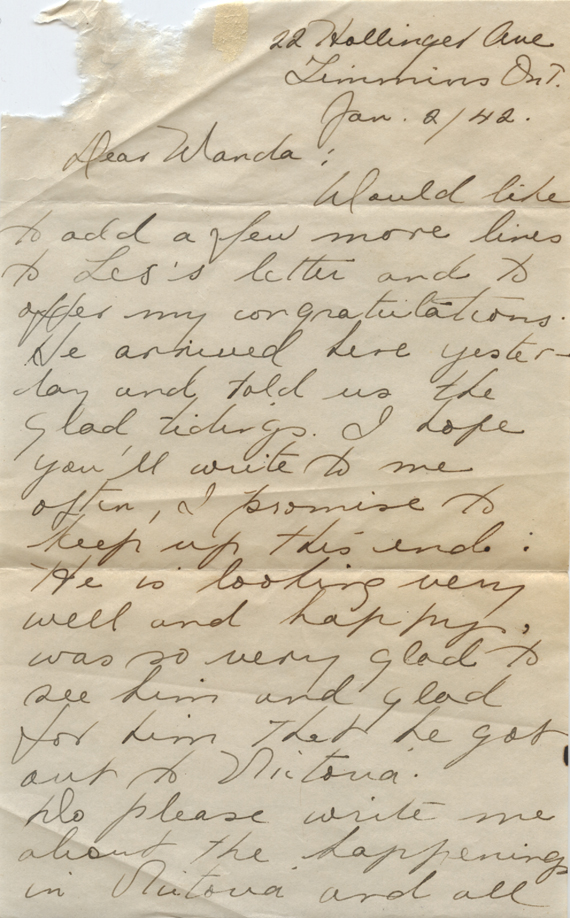 22 Hollinger Ave
Timmins Ont.
Jan. 2/42.
Dear Wanda;
Would like
to add a few more lines
to Les's letter and to
offer my congratulations.
He arrived here yester-
day and told us the
glad tidings. I hope
you'll write to me
often, I promise to
keep up this end:
He is looking very
well and happy,
was so very glad to
see him and glad
for him that he got
out to Victoria.
Do please write me
about the happenings
in Victoria and all